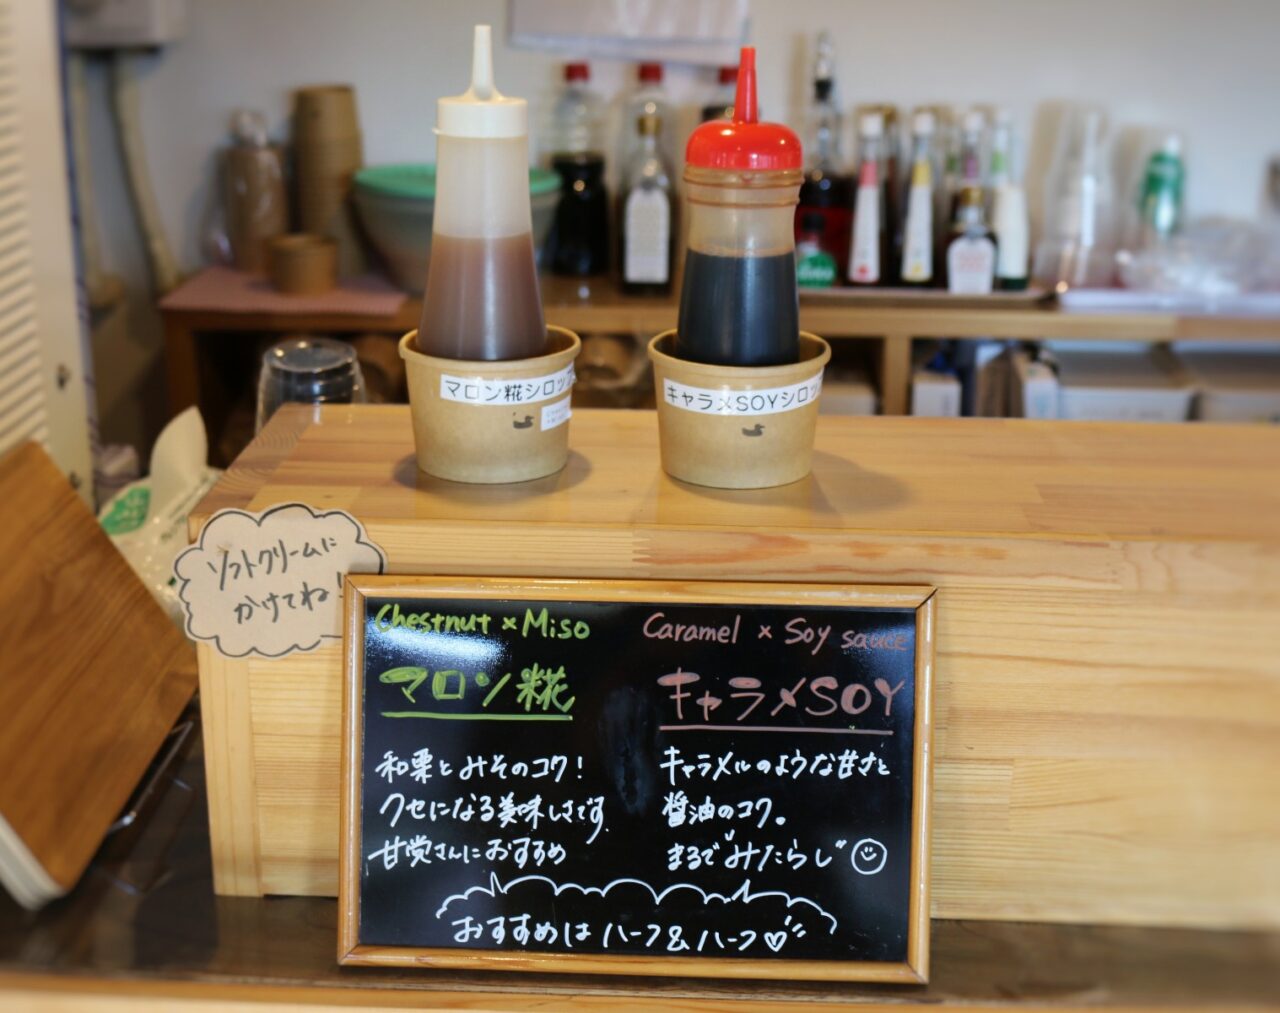 マロン糀シロップ
キャラメSOYシロッ
ソフトクリームに
かけてね!
Chestnut × Miso
マロン糀
和栗とみそのコク!
クセになる美味しさです
甘党さんにおすすめ
Caramel × Soy sauce
キャラメSOY
キャラメルのような甘さと
醤油のコク。
まるで"みたらし"
おすすめはハーフ&ハーフ♡